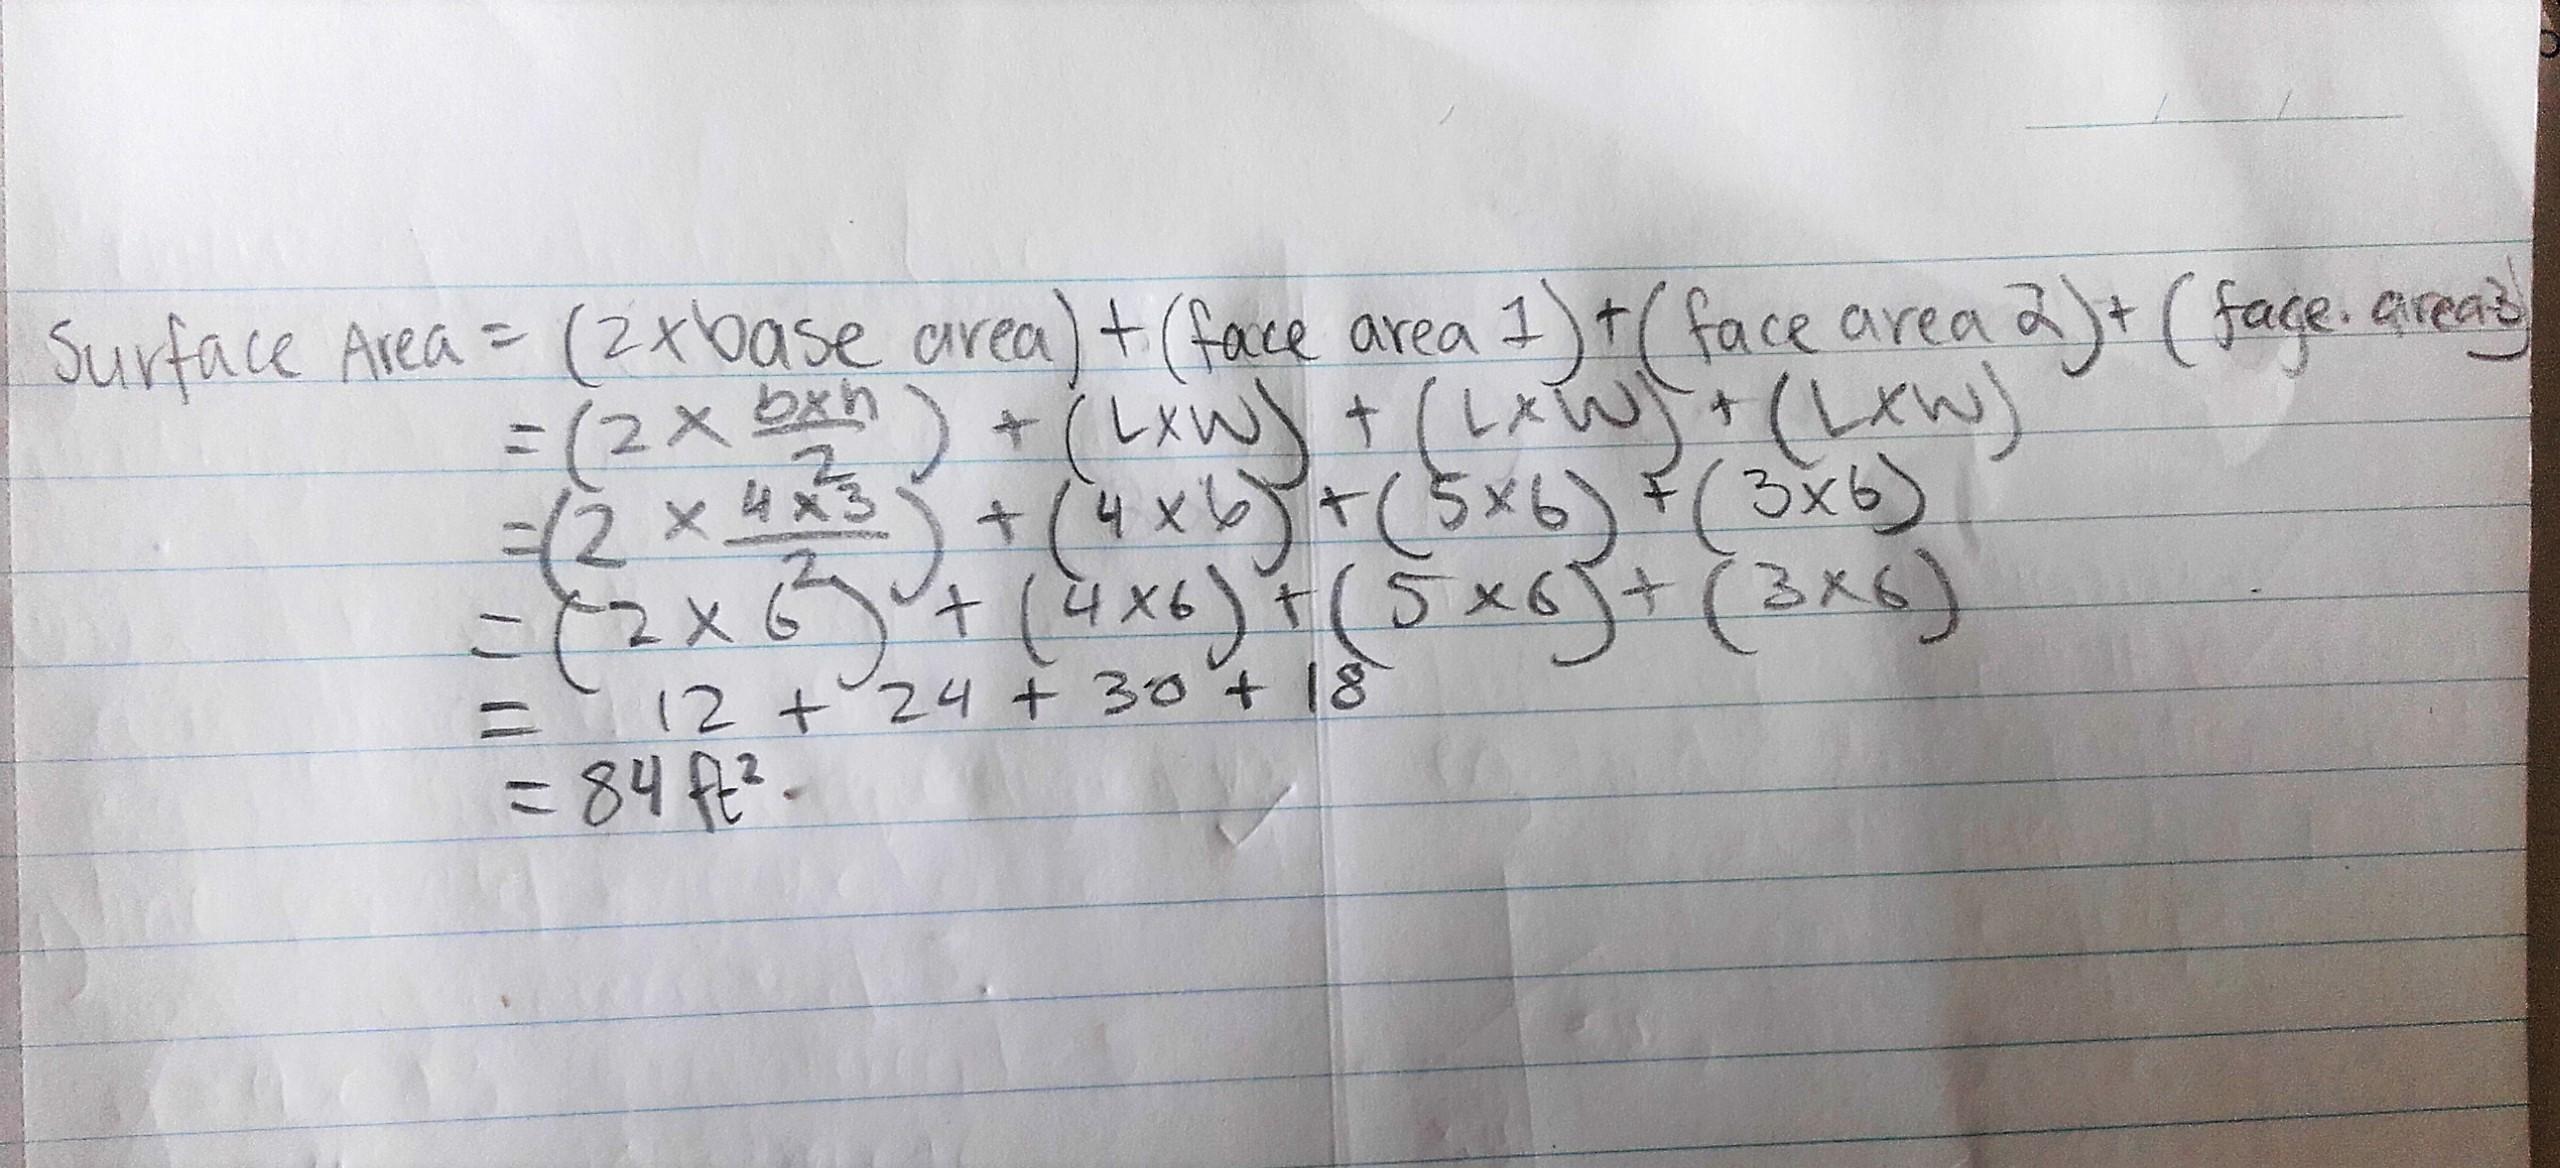 Surface Area = (2xbase area) + (face area 1) + (face area 2) + (face. area 3)
= (2 × b×h/2) + (L×W) + (L×W) + (L×W)
= (2 × 4×3/2) + (4×6) + (5×6) + (3×6)
= (2 × 6) + (4×6) + (5×6) + (3×6)
= 12 + 24 + 30 + 18
= 84 ft².